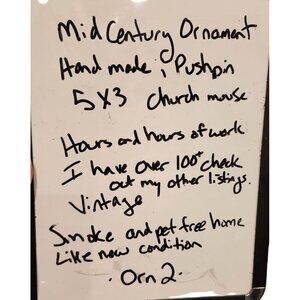 Mid Century Ornament
Hand made, Pushpin
5X3 church mouse
Hours and hours of work
I have over 100+ check
out my other listings.
Vintage
Smoke and pet free home
Like new condition
· Orn 2 ·